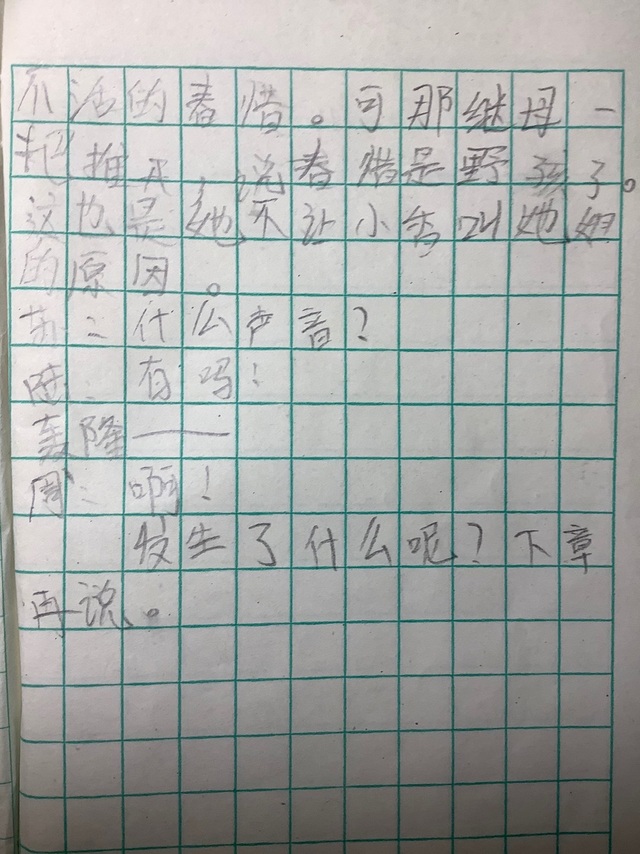 不活的春惜。可那继母一
把推开，说春惜是野孩子。
这也是她不让小香叫她姐
的原因。
什么声音？
陆：有吗！
轰隆——
周：啊！
发生了什么呢？下章
再说。